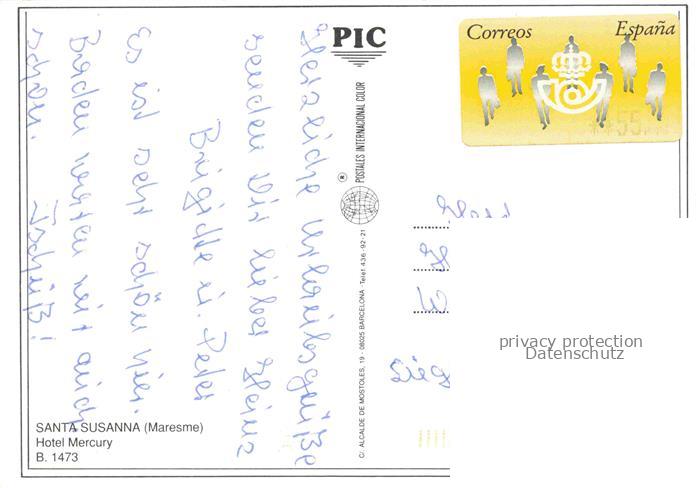 Correos España
PIC
POSTALES INTERNACIONAL COLOR
®
C/. ALCALDE DE MOSTOLES, 19 - 08025 BARCELONA - Telef. 436 - 92 - 21
Herzliche Urlaubsgrüße
senden Dir lieber Heinz
Brigitte u. Peter
Es ist sehr schön hier.
Baden waren wir auch
schon. Tschüß!
Herrn
Sieg
privacy protection
Datenschutz
SANTA SUSANNA (Maresme)
Hotel Mercury
B. 1473